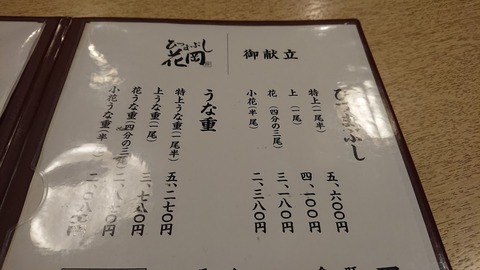 ひつまぶし
花岡
御献立
ひつまぶし
特上(一尾半) 五、六〇〇円
上(一尾) 四、一〇〇円
花(四分の三尾) 三、一八〇円
小花(半尾) 二、三八〇円
うな重
特上うな重(一尾半) 五、二七〇円
上うな重(一尾) 三、七八〇円
花うな重(四分の三尾) 二、八八〇円
小花うな重(半